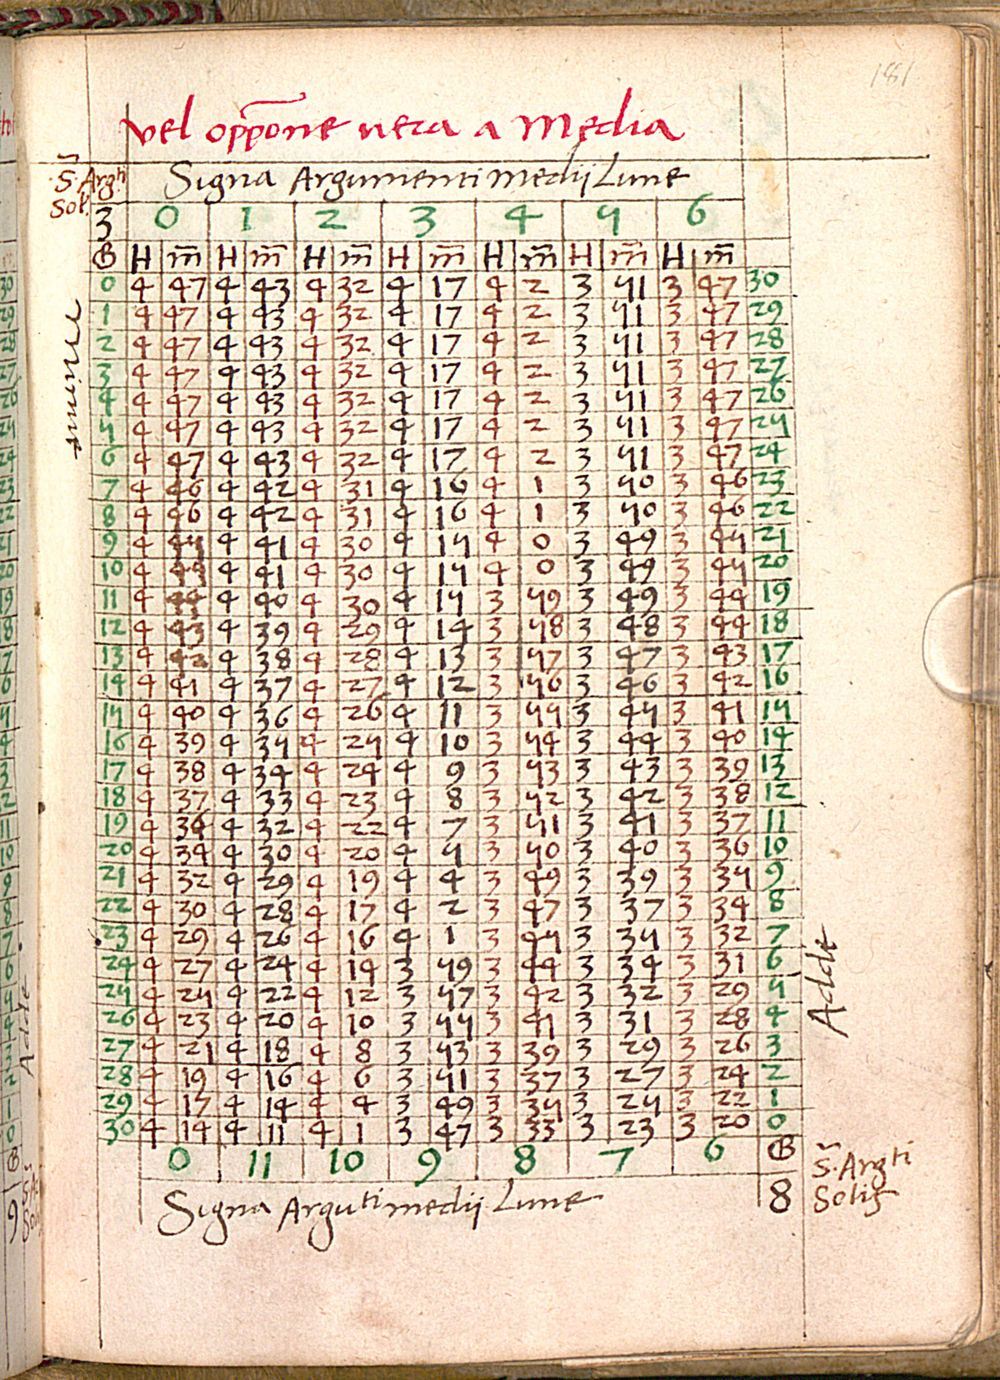 181
vel oppone vera a Media
S. Argti
Sol.
Signa Argumenti medij Lune
3 0 1 2 3 4 5 6
G H m H m H m H m H m H m H m
0 4 47 4 43 4 32 4 17 4 2 3 51 3 47 30
1 4 47 4 43 4 32 4 17 4 2 3 51 3 47 29
2 4 47 4 43 4 32 4 17 4 2 3 51 3 47 28
3 4 47 4 43 4 32 4 17 4 2 3 51 3 47 27
4 4 47 4 43 4 32 4 17 4 2 3 51 3 47 26
5 4 47 4 43 4 32 4 17 4 2 3 51 3 47 25
6 4 47 4 43 4 32 4 17 4 2 3 51 3 47 24
7 4 46 4 42 4 31 4 16 4 1 3 50 3 46 23
8 4 46 4 42 4 31 4 16 4 1 3 50 3 46 22
9 4 45 4 41 4 30 4 15 4 0 3 49 3 45 21
10 4 45 4 41 4 30 4 15 4 0 3 49 3 45 20
11 4 44 4 40 4 30 4 15 3 59 3 49 3 44 19
12 4 43 4 39 4 29 4 14 3 58 3 48 3 44 18
13 4 42 4 38 4 28 4 13 3 57 3 47 3 43 17
14 4 41 4 37 4 27 4 12 3 56 3 46 3 42 16
15 4 40 4 36 4 26 4 11 3 55 3 45 3 41 15
16 4 39 4 35 4 25 4 10 3 54 3 44 3 40 14
17 4 38 4 34 4 24 4 9 3 53 3 43 3 39 13
18 4 37 4 33 4 23 4 8 3 52 3 42 3 38 12
19 4 36 4 32 4 22 4 7 3 51 3 41 3 37 11
20 4 34 4 30 4 20 4 5 3 50 3 40 3 36 10
21 4 32 4 29 4 19 4 4 3 49 3 39 3 35 9
22 4 30 4 28 4 17 4 2 3 47 3 37 3 34 8
23 4 29 4 26 4 16 4 1 3 45 3 35 3 32 7
24 4 27 4 24 4 14 3 59 3 44 3 34 3 31 6
25 4 25 4 22 4 12 3 57 3 42 3 32 3 29 5
26 4 23 4 20 4 10 3 55 3 41 3 31 3 28 4
27 4 21 4 18 4 8 3 53 3 39 3 29 3 26 3
28 4 19 4 16 4 6 3 51 3 37 3 27 3 24 2
29 4 17 4 14 4 4 3 49 3 35 3 25 3 22 1
30 4 14 4 11 4 1 3 47 3 33 3 23 3 20 0
0 11 10 9 8 7 6 G
Signa Arguti medij Lune
8
S. Argti
Solis
minue
Adde
Adde